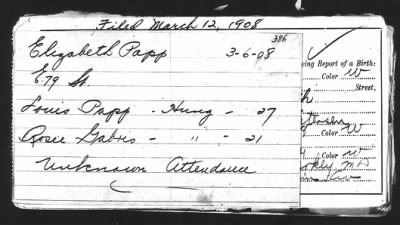 Filed March 12, 1908
386
Elizabeth Papp 3-6-08
E. 79 St.
Louis Papp - Hung - 27
Rosie Gabris - " - 21
Unknown Attendance
ving Report of a Birth:
Color W
Street,
Color W
Color W
M D